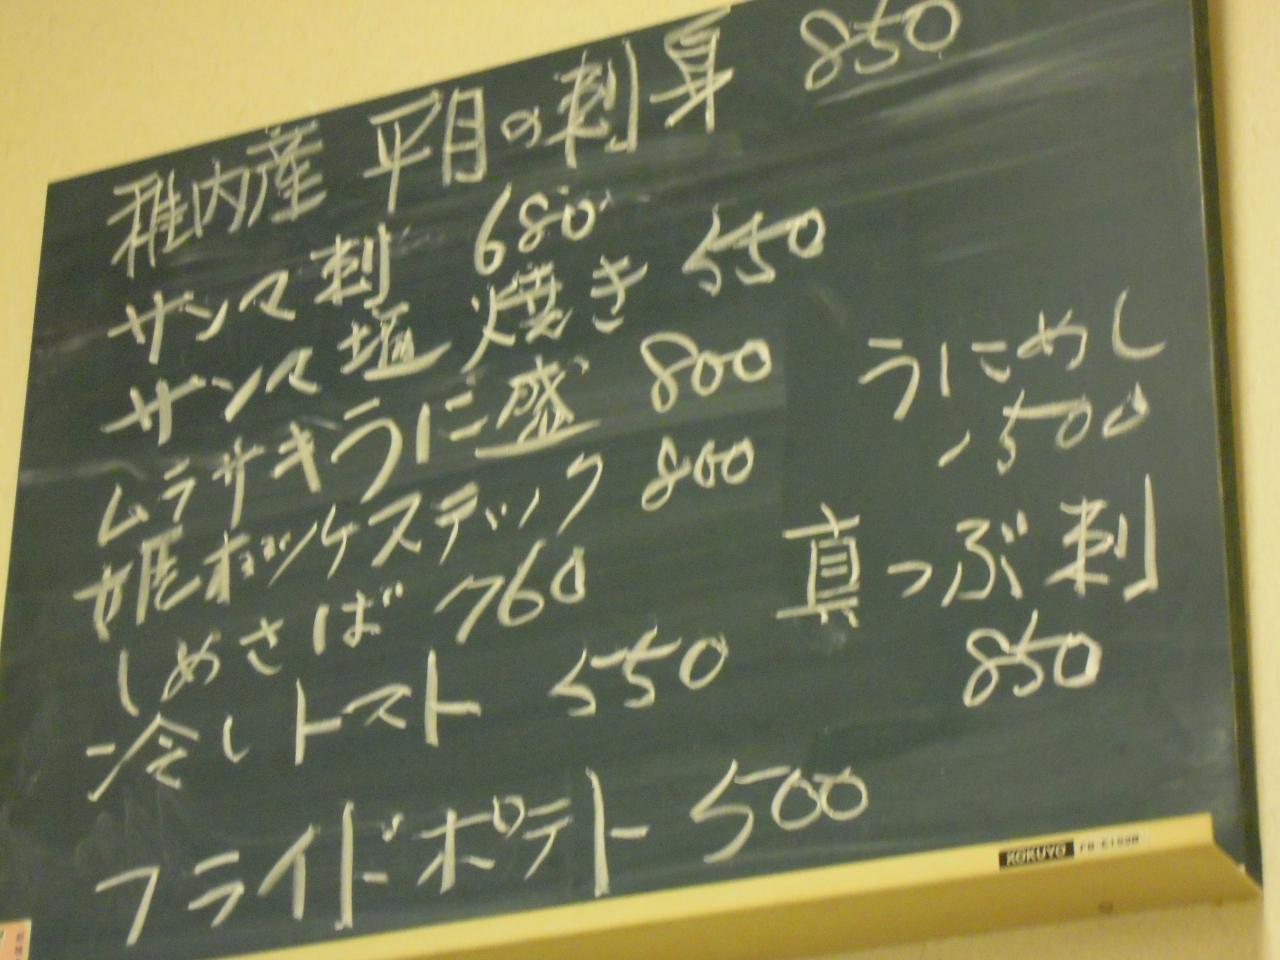 稚内産 平目の刺身 850
サンマ刺 680
サンマ塩焼き 550
ムラサキうに盛 800
姫ホッケスティック 800
しめさば 760
冷しトマト 550
フライドポテト 500
うにめし
1500
真つぶ刺
850
KOKUYO